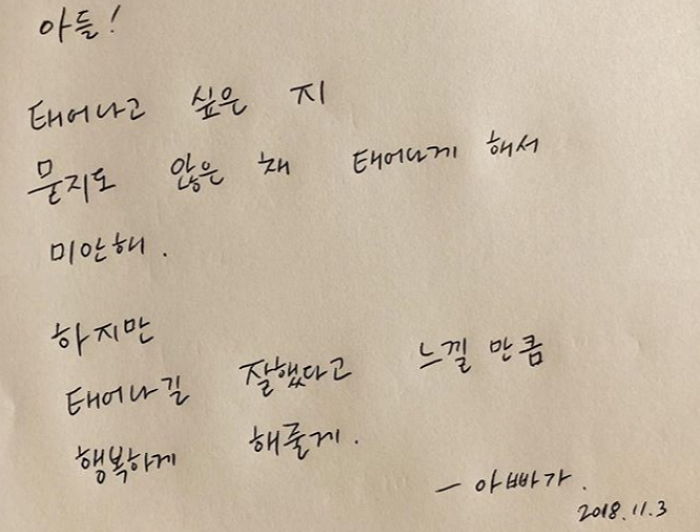 아들!
태어나고 싶은 지
묻지도 않은 채 태어나게 해서
미안해.
하지만
태어나길 잘했다고 느낄 만큼
행복하게 해줄게.
- 아빠가.
2018.11.3